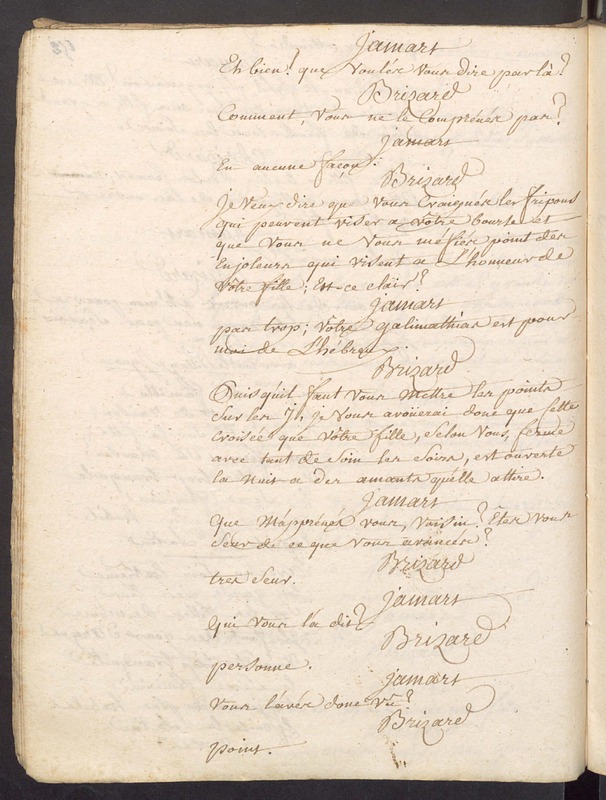 jamart
Eh bien! que voulés vous dire par là?
Brizard
Comment, vous ne le Comprénés pas?
jamart
En aucune façon.
Brizard
Je veux dire que vous craignés les fripons
qui peuvent viser a vôtre bourse et
que vous ne vous méfiés point des
Enjoleurs qui visent a L'honneur de
vôtre fille; Est ce clair?
jamart
pas trop; vôtre galimathias est pour
moi de L'hébreu.
Brizard
Puisqu'il faut vous Mettre les points
Sur les J, je vous avoüerai donc que cette
croisée que vôtre fille, selon vous, ferme
avec tant de soin les soirs, est ouverte
la Nuit a des amants qu'elle attire.
jamart
Que M'apprénés vous, voisin? Etes vous
Seur de ce que vous avancés?
Brizard
tres seur.
jamart
qui vous l'a dit?
Brizard
personne.
jamart
vous l'avés donc vû?
Brizard
point.